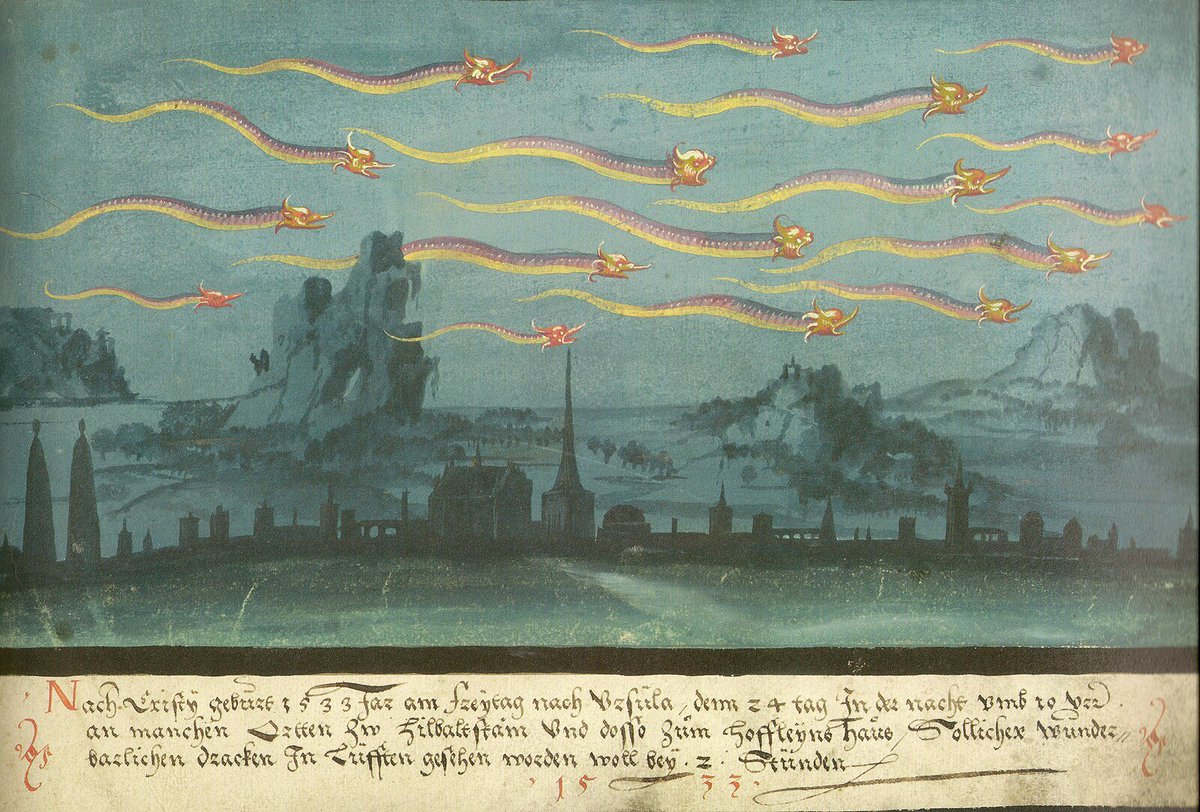 Nach Cristÿ gebürt 1533 Jar am freÿtag nach Vrsüla, dem 24 tag In der nacht vmb 10 vrr.
an manchen Ortten Zw Hilbaltstäin Vnd dosso Züm hoffleÿns Haüs Sollicher wünder=
barlichen dracken In Lüfften gesehen worden woll beÿ .2. Stünden
1533.